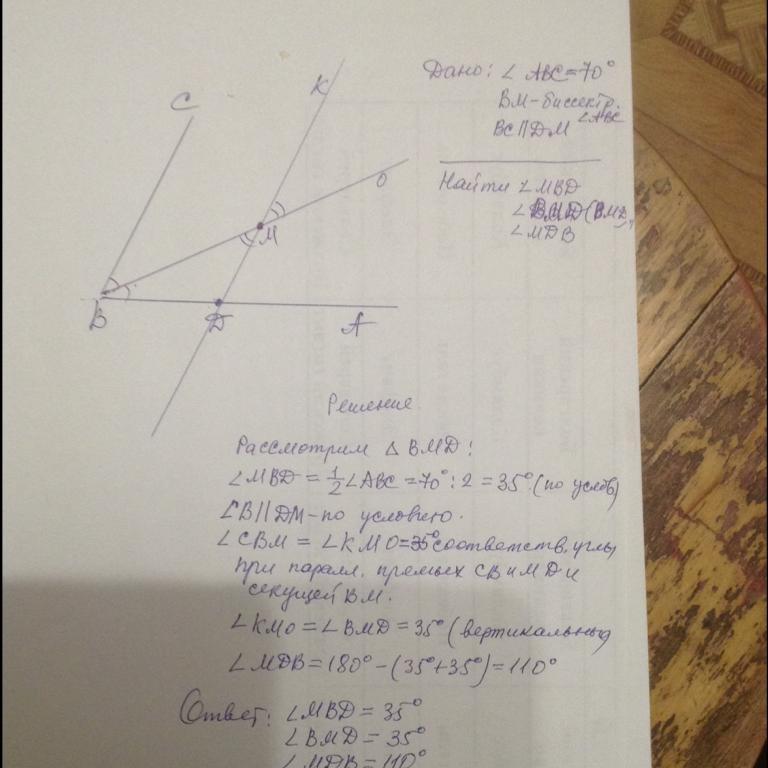 C
K
O
M
B
D
A
Дано: ∠ ABC = 70°
BM - биссектр. ∠ABC
BC || DM
Найти ∠MBD
∠BMD
∠MDB
Решение.
Рассмотрим Δ BMD:
∠MBD = 1/2 ∠ABC = 70° : 2 = 35°. (по услов)
CB || DM - по условию.
∠CBM = ∠KMO = 35° соответств. углы
при паралл. прямых CB и MD и
секущей BM.
∠KMO = ∠BMD = 35° (вертикальные)
∠MDB = 180° - (35° + 35°) = 110°
Ответ: ∠MBD = 35°
∠BMD = 35°
∠MDB = 110°